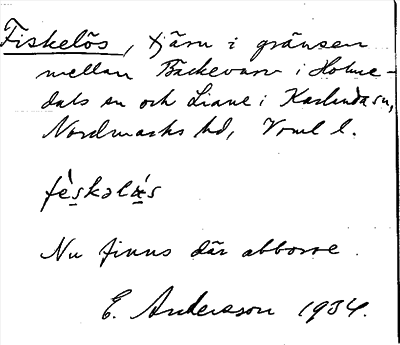 Fiskelös, tjärn i gränsen
mellan Bäckevarv i Holme-
dals sn och Liane i Karlanda sn,
Nordmarks hd, Vrml l.
fè̱skəlǻ̱s
Nu finns där abborre.
E. Andersson 1934.